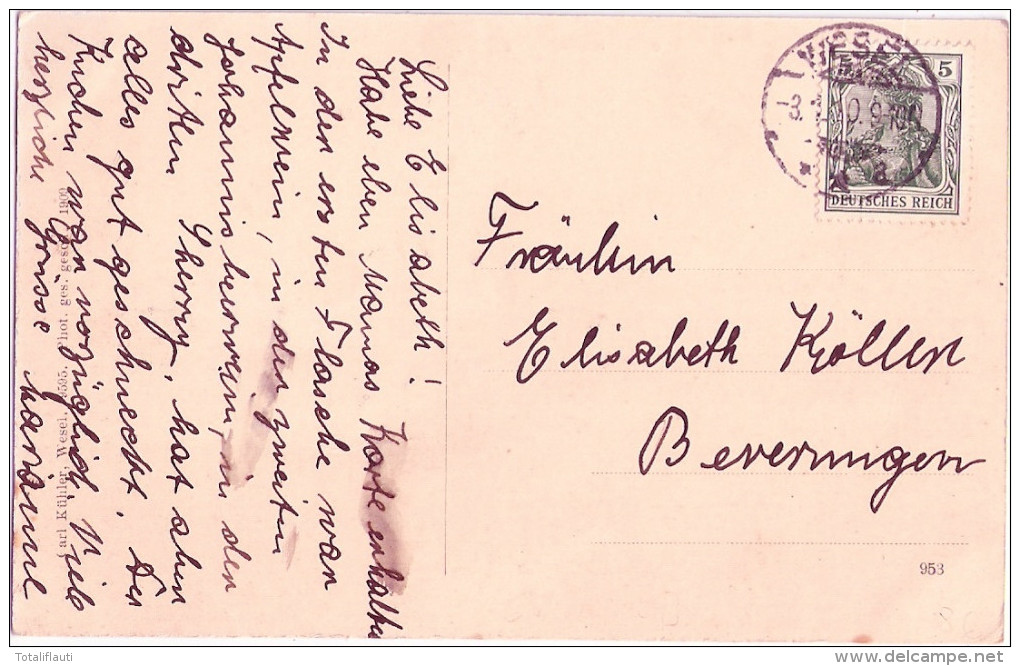 Liebe Elisabeth!
Habe eben Mamas Karte erhalten
In der ersten Flasche war
Apfelwein, in der zweiten
Johannisbeerwein, in der
dritten Sherry, hat aben
alles gut geschmeckt. Der
Kuchen war vorzüglich Viele
herzliche Grüsse Marianne
Carl Kühler, Wesel. 9595. Phot. ges. gesch. 1909
WESEL
5
DEUTSCHES REICH
Fräulein
Elisabeth Köller
Beverungen
953
Totaliflauti
delcampe.net